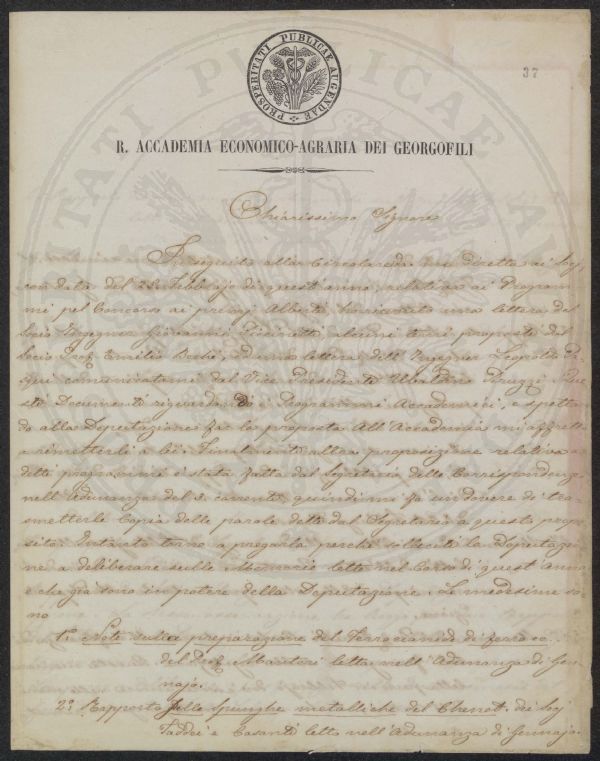 PROSPERITATI PUBLICAE AUGENDAE
37
R. ACCADEMIA ECONOMICO-AGRARIA DEI GEORGOFILI
Chiarissimo Signore
In seguito alla Circolare da me diretta ai Sigg.
con data del Febbrajo di quest'anno relativa ai Program
mi pel Concorso ai premj Alberti ho ricevuto una lettera del
Socio Ingegner Giovanni alcuni temi proposti dal
Socio Prof. Emilio Bechi, ed una lettera dell'Ingegner Leopoldo
comunicatami dal Vice Presidente Ubaldino Peruzzi Que
sti Documenti riguardando i Programmi Accademici, e spettan
do alla Deputazione far la proposta All'Accademia mi affretto
a rimetterli a Lei. Finalmente altra proposizione relativa a
detti programmi è stata fatta dal Segretario delle Corrispondenze
nell'Adunanza del 3. corrente, quindi mi fo un dovere di tra
smetterle Copia delle parole dette dal Segretario a questo propo
sito. Intanto torno a pregarla perchè solleciti la Deputazio
ne a deliberare sulle Memorie lette nel Corso di quest'anno
e che già sono in potere della Deputazione. Le medesime so
no
1ª. Nota sulla preparazione del Ferrocianido di
del Prof. letta nell'Adunanza di Gen
najo.
2º. Rapporto sulle Spunghe metalliche del Chenot. dei Sigg
Taddei e Casanti letto nell'Adunanza di Gennajo.